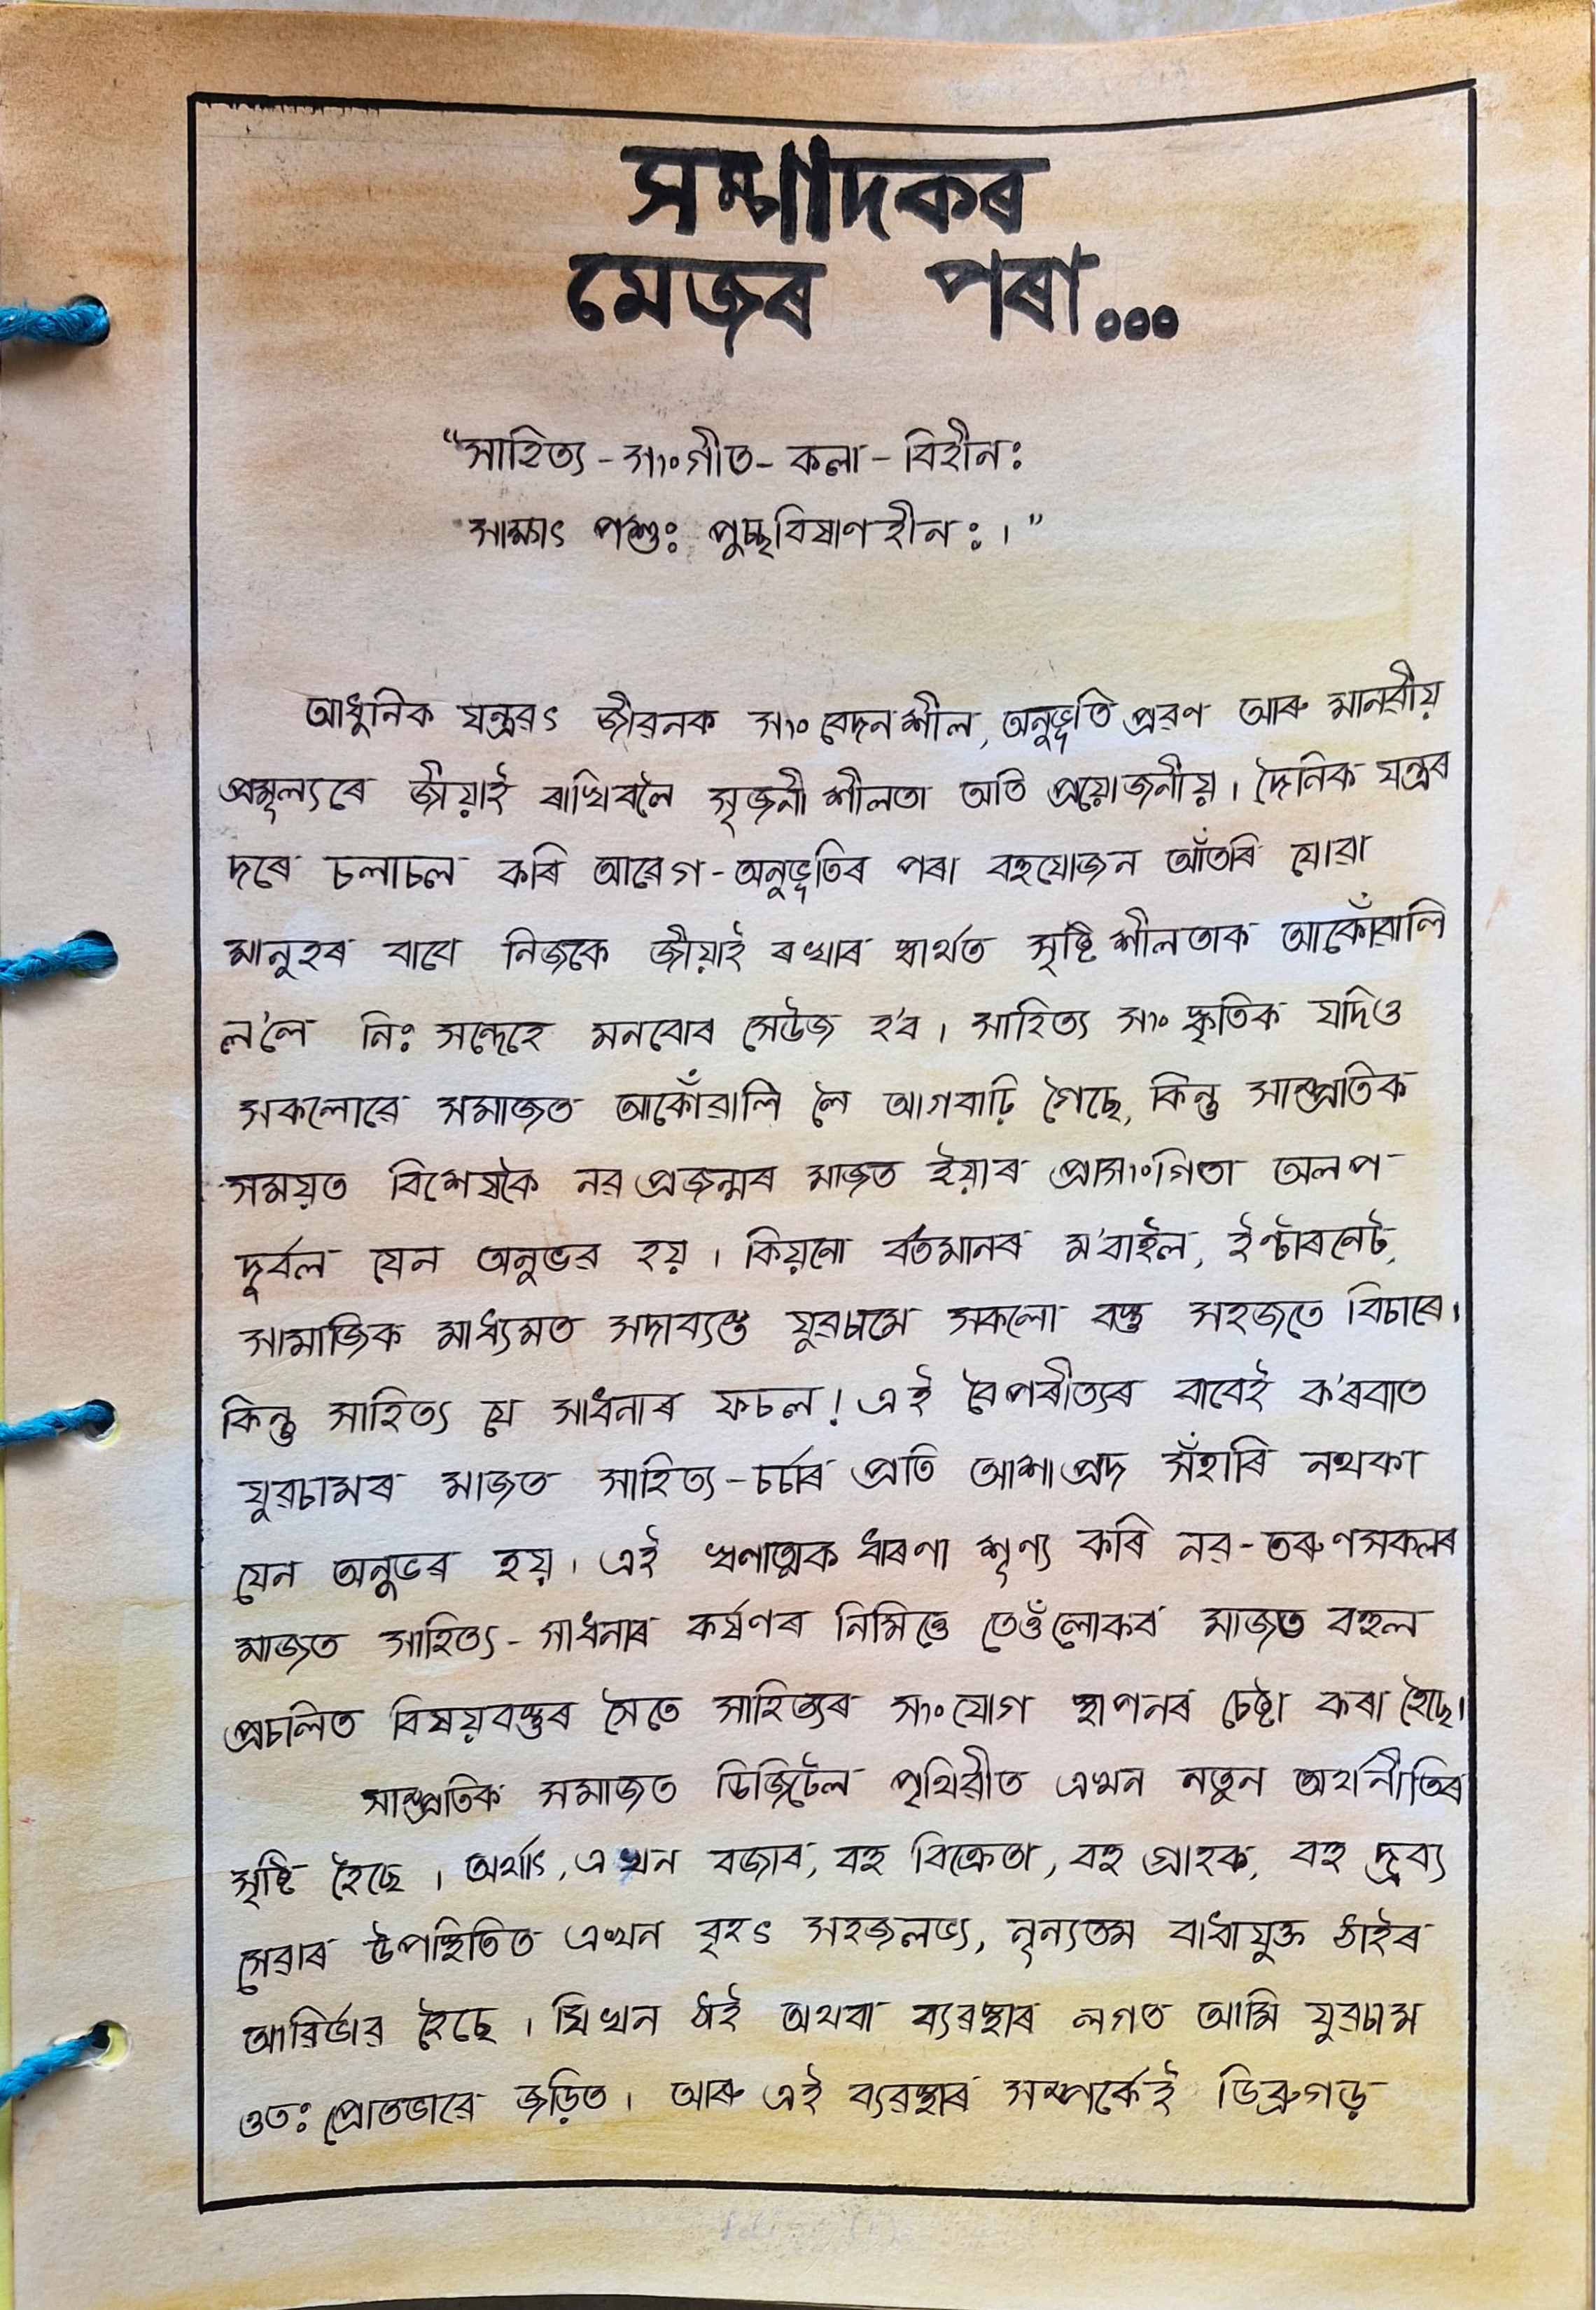 সম্পাদকৰ
মেজৰ পৰা...
“সাহিত্য - সংগীত - কলা - বিহীন:
সাক্ষাৎ পশুঃ পুচ্ছবিষাণহীন:।”
আধুনিক যন্ত্ৰৱৎ জীৱনক সংবেদনশীল, অনুভূতি প্ৰৱণ আৰু মানৱীয়
প্ৰমূল্যৰে জীয়াই ৰাখিবলৈ সৃজনীশীলতা অতি প্ৰয়োজনীয়। দৈনিক যন্ত্ৰৰ
দৰে চলাচল কৰি আৱেগ-অনুভূতিৰ পৰা বহুযোজন আঁতৰি যোৱা
মানুহৰ বাবে নিজকে জীয়াই ৰখাৰ স্বাৰ্থত সৃষ্টিশীলতাক আকোঁৱালি
ল'লে নিঃসন্দেহে মনবোৰ সেউজ হ'ব। সাহিত্য সংস্কৃতিক যদিও
সকলোৱে সমাজত আকোঁৱালি লৈ আগবাঢ়ি গৈছে, কিন্তু সাম্প্ৰতিক
সময়ত বিশেষকৈ নৱপ্ৰজন্মৰ মাজত ইয়াৰ প্ৰাসংগিতা অলপ
দুৰ্বল যেন অনুভৱ হয়। কিয়নো বৰ্তমানৰ ম'বাইল, ইণ্টাৰনেট,
সামাজিক মাধ্যমত সদাব্যস্ত যুৱচামে সকলো বস্তু সহজতে বিচাৰে।
কিন্তু সাহিত্য যে সাধনাৰ ফচল! এই বৈপৰীত্যৰ বাবেই ক'ৰবাত
যুৱচামৰ মাজত সাহিত্য-চৰ্চাৰ প্ৰতি আশাপ্ৰদ সঁহাৰি নথকা
যেন অনুভৱ হয়। এই ঋণাত্মক ধাৰণা শূণ্য কৰি নৱ-তৰুণসকলৰ
মাজত সাহিত্য-সাধনাৰ কৰ্ষণৰ নিমিত্তে তেওঁলোকৰ মাজত বহুল
প্ৰচলিত বিষয়বস্তুৰ সৈতে সাহিত্যৰ সংযোগ স্থাপনৰ চেষ্টা কৰা হৈছে।
সাম্প্ৰতিক সমাজত ডিজিটেল পৃথিৱীত এখন নতুন অৰ্থনীতিৰ
সৃষ্টি হৈছে। অৰ্থাৎ, এখন বজাৰ, বহু বিক্ৰেতা, বহু গ্ৰাহক, বহু দ্ৰব্য
সেৱাৰ উপস্থিতিত এখন বৃহৎ সহজলভ্য, নূন্যতম বাধাযুক্ত ঠাইৰ
আৱিৰ্ভাৱ হৈছে। যিখন ঠাই অথবা ব্যৱস্থাৰ লগত আমি যুৱচাম
ওতঃপ্ৰোতভাৱে জড়িত। আৰু এই ব্যৱস্থাৰ সম্পৰ্কেই ডিব্ৰুগড়